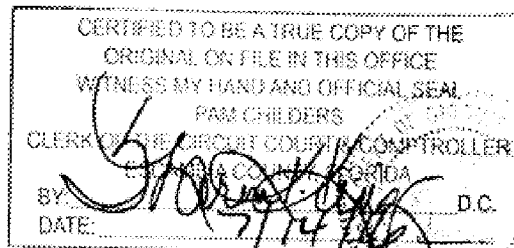 CERTIFIED TO BE A TRUE COPY OF THE
ORIGINAL ON FILE IN THIS OFFICE
WITNESS MY HAND AND OFFICIAL SEAL
PAM CHILDERS
CLERK OF THE CIRCUIT COURT & COMPTROLLER
COUNTY, FLORIDA
BY: D.C.
DATE: 7/14